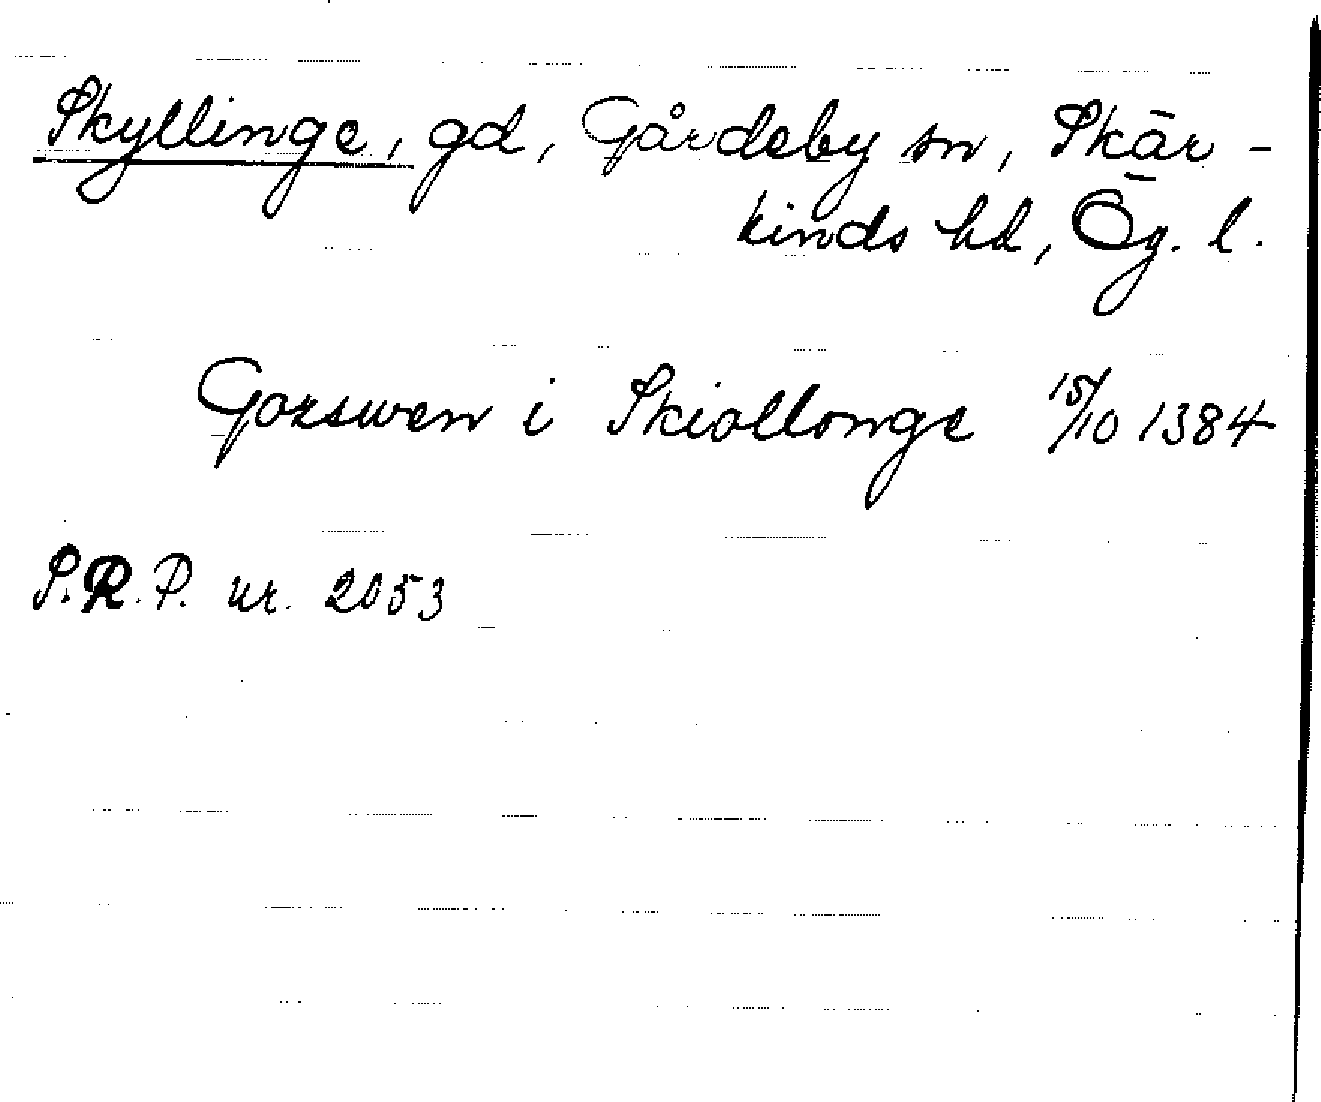 Skyllinge, gd, Gårdeby sn, Skär-
kinds hd, Ög. l.
Gozswen i Skiollonge 15/10 1384
S.R.P. nr. 2053